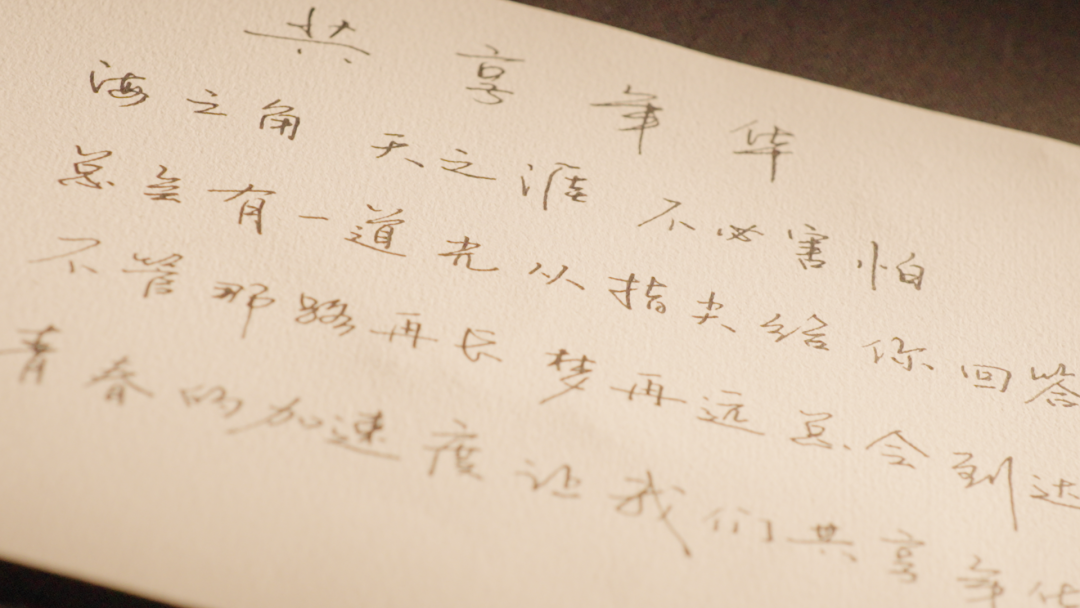 共享年华
海之角 天之涯 不必害怕
总会有一道光 从指尖给你回答
不管那路再长 梦再远 总会到达
青春的加速度 让我们共享年华